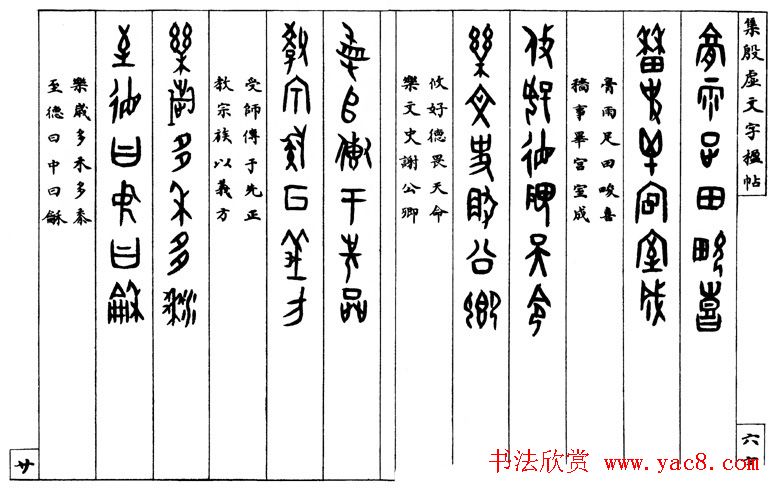 集殷虛文字楹帖
膏雨足田畯喜
穡事畢宮室成
攸好德畏天命
樂文史謝公卿
受師傅于先正
教宗族以義方
樂歲多禾多黍
至德曰中曰龢
六
廿
书法欣赏 www.yac8.com